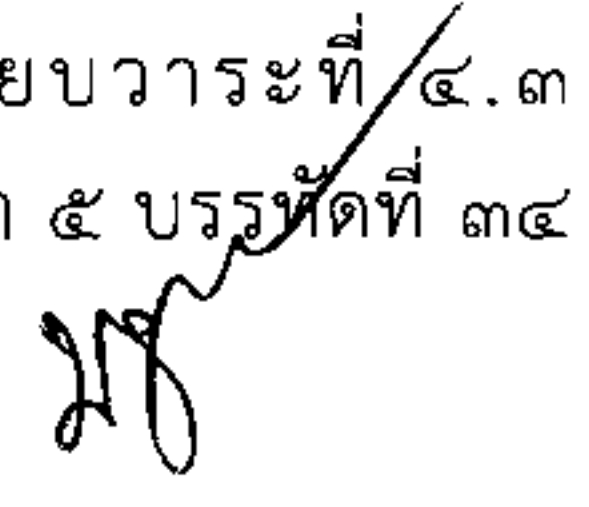 ยบวาระที่ ๔.๓
๕ บรรทัดที่ ๓๔